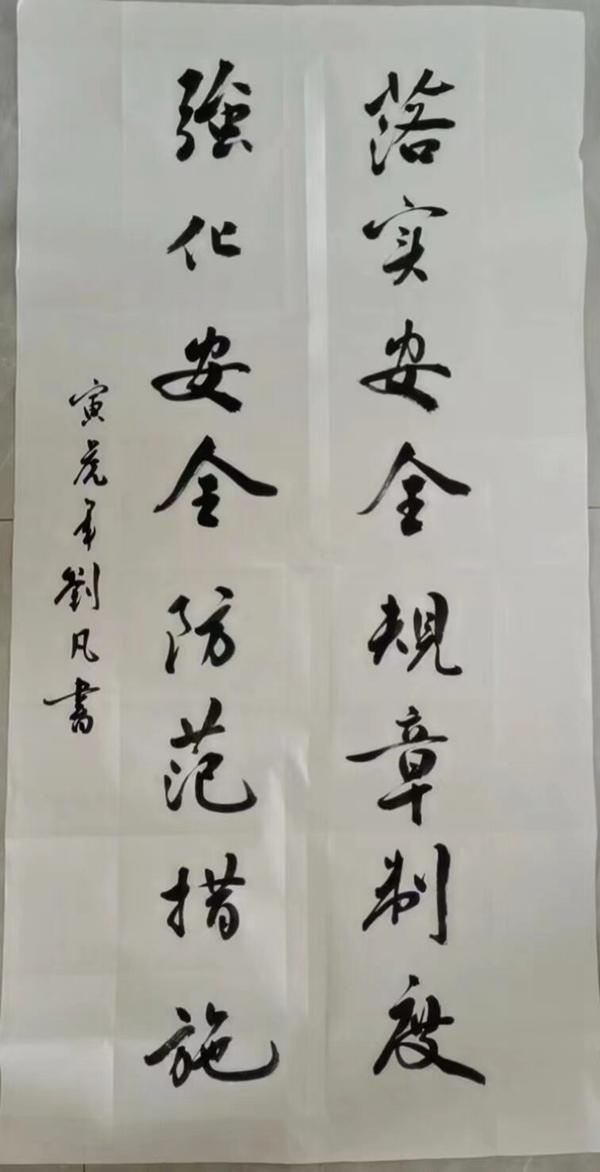 落实安全规章制度
強化安全防范措施
寅虎年劉凡書